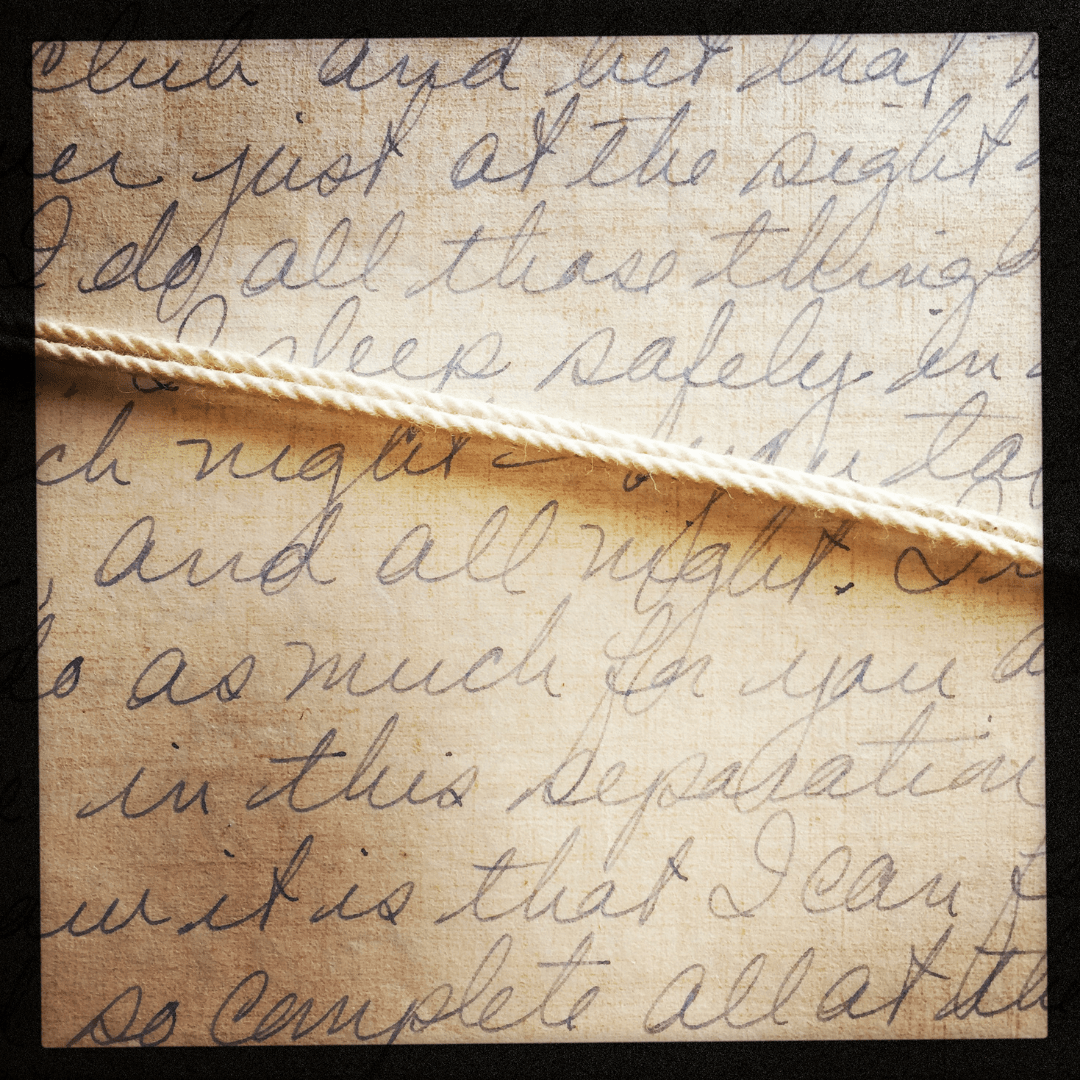 club and bet that
er just at the sight
I do all those thing
I sleep safely in
ch night - you
, and all night.
do as much for you
in this separation
it is that I can
so complete all at th